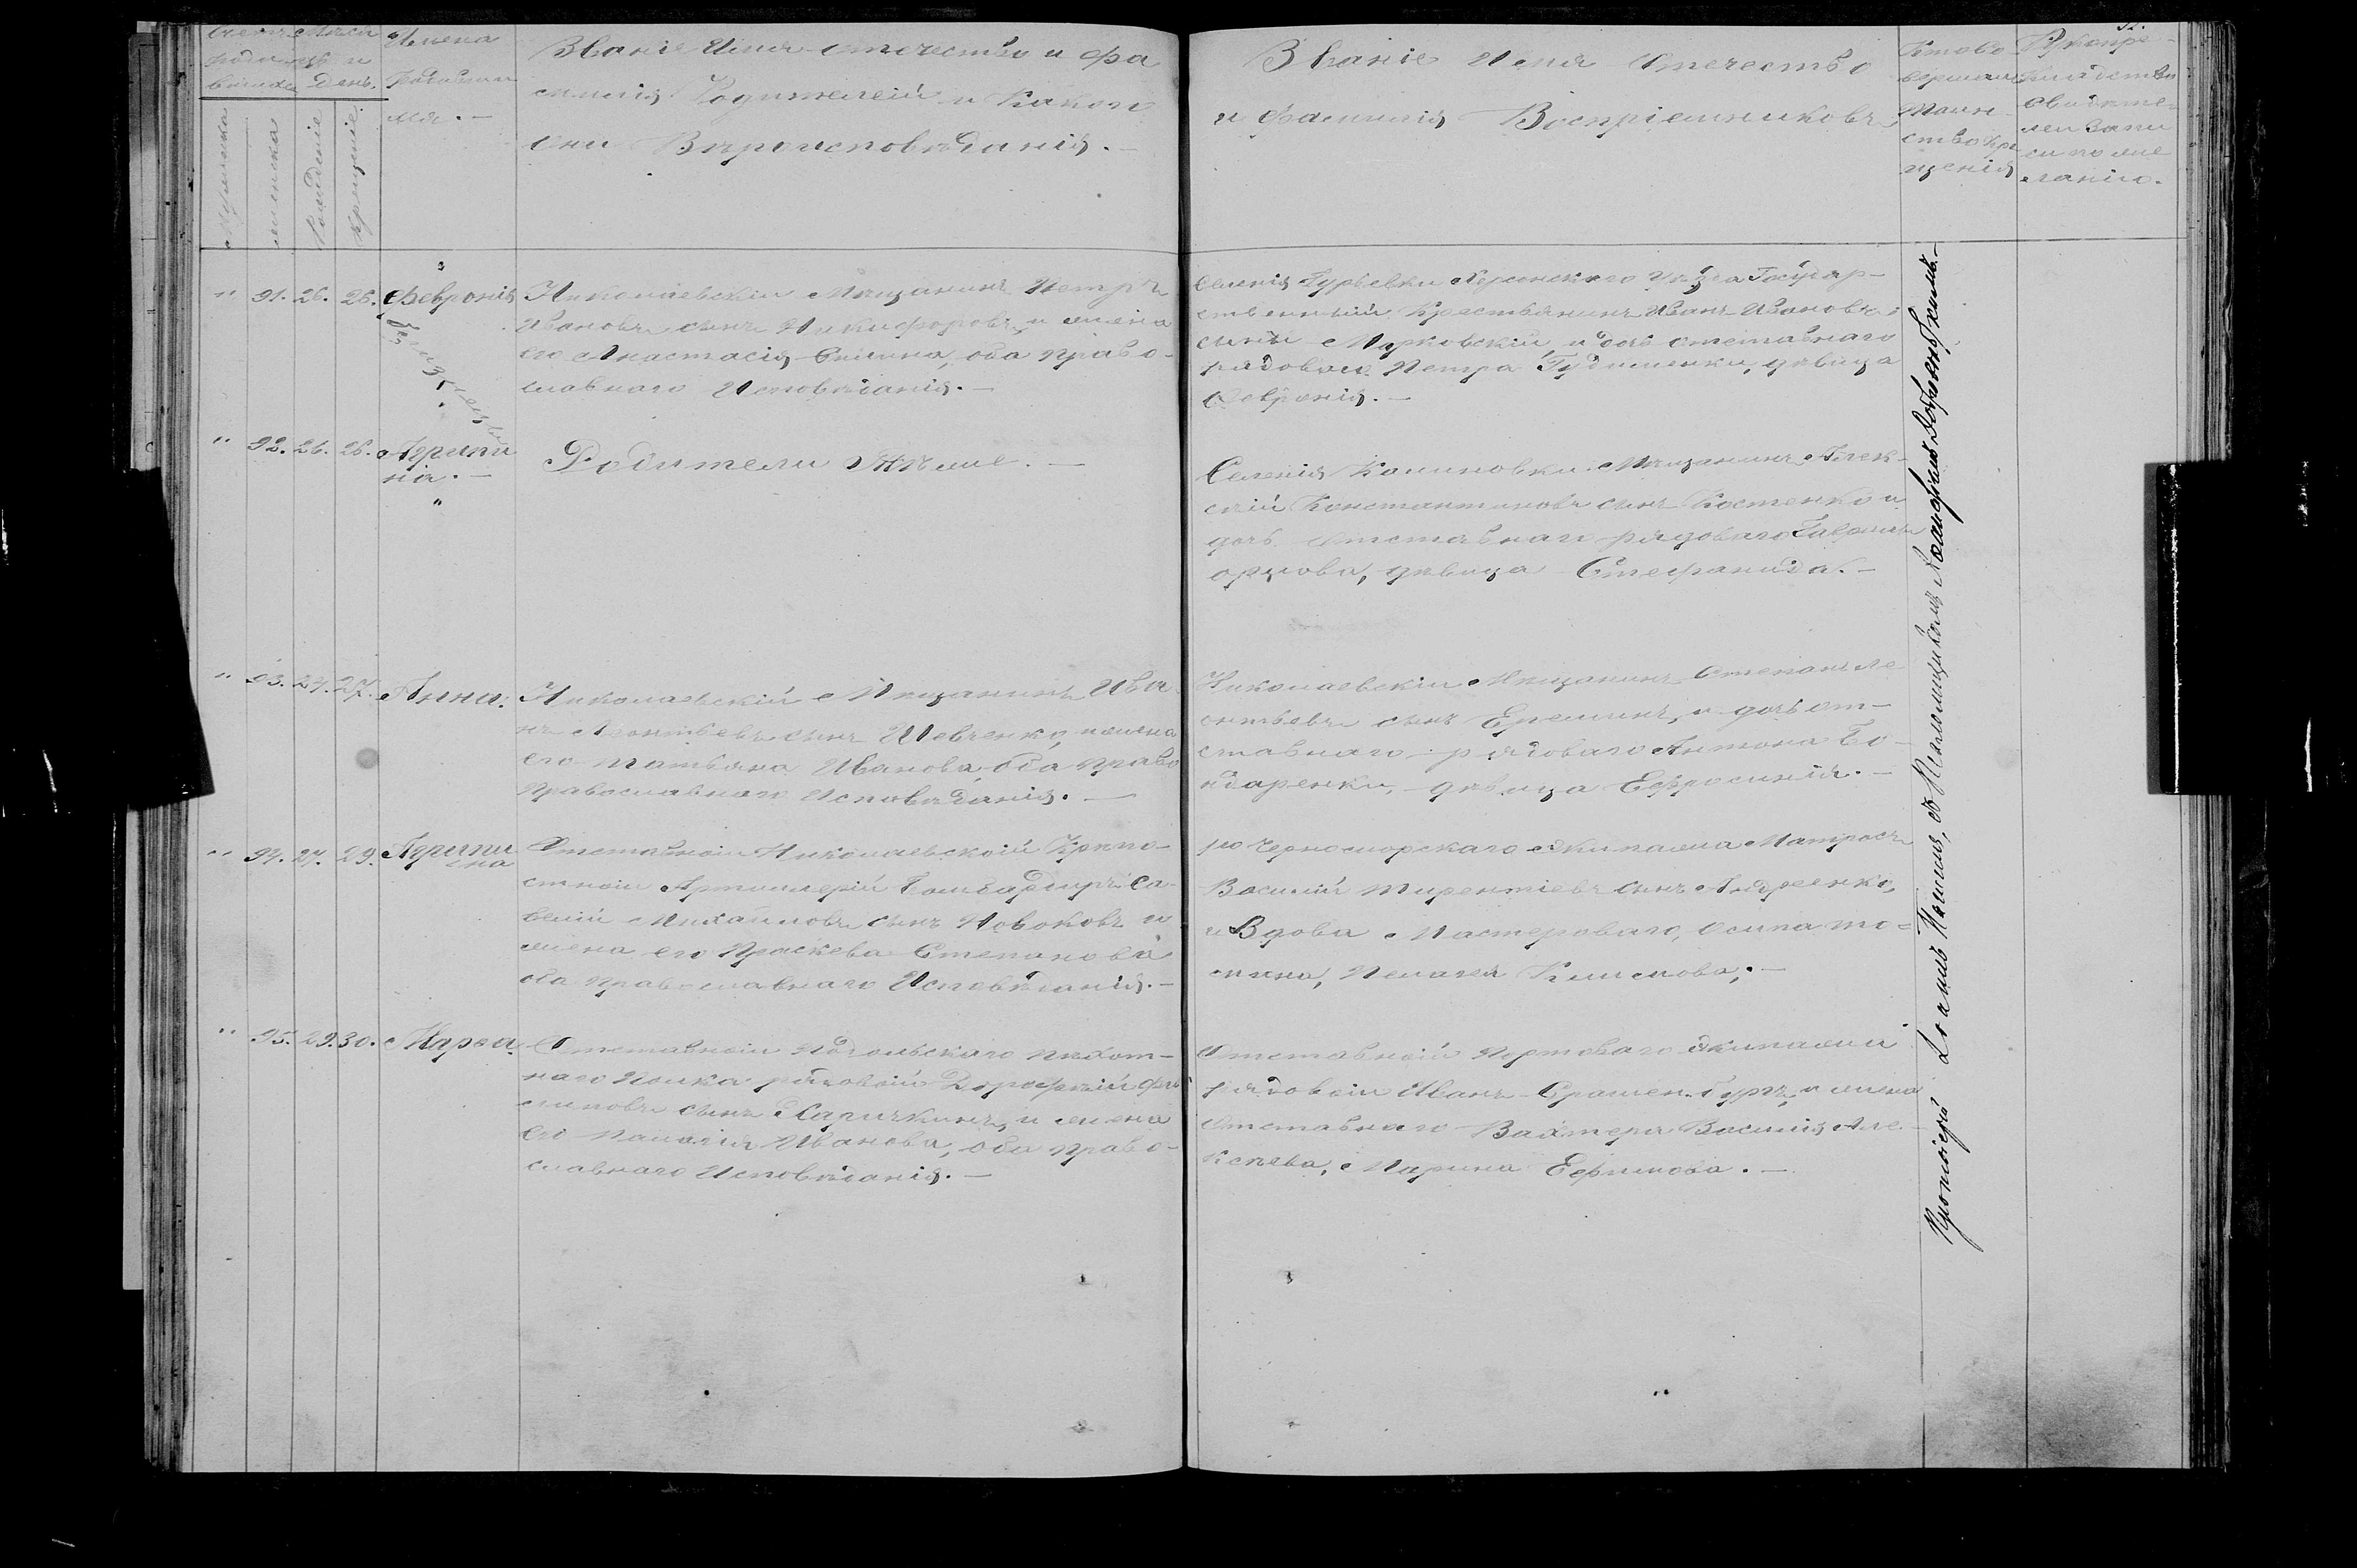 52.
Счетъ
роди
вшихся
Мѣся
цъ и
День.
Мужеска
женска
Рожденіе
Крещеніе
Имена
Родивши
хся. —
Званіе Имя Отечество и Фа
милія Родителей и Какого
они Вѣроисповѣданія. —
Званіе Имя Отечество
и Фамилія Воспріемниковъ
Кто со
вершалъ
Таин-
ство Кре
щенія
Рукопри-
кладство
свидѣте-
лей запи
си по же
ланію.
" 91. 26. 26. Февронія
близнецы
Николаевскій Мѣщанинъ Петръ
Ивановъ сынъ Никифоровъ, и жена
его Анастасія, оба право-
славнаго Исповѣданія. —
Селенія Гурьевки Херсонскаго уѣзда Государ-
ственный Крестьянинъ Иванъ Ивановъ
сынъ Марковскій, и дочь отставнаго
рядоваго Петра Гудименки, дѣвица
Февронія. —
" 92. 26. 26. Агрипи
на. —
Родители Тѣ же. —
Селенія Калиновки Мѣщанинъ Алек-
сѣй Константиновъ сынъ Костенко и
дочь отставнаго рядоваго Гавріила
Орлова, дѣвица Стефанида. —
" 93. 24. 27. Анна.
Николаевскій Мѣщанинъ Ива
нъ Леонтьевъ сынъ Шевченко, и жена
его Татьяна Иванова, оба право
Православнаго Исповѣданія. —
Николаевскій Мѣщанинъ Степанъ Ле
онтьевъ сынъ Ереминъ, и дочь от-
ставнаго рядоваго Антона Бо-
ндаренки, дѣвица Ефросинія. —
" 94. 27. 29. Агрипи
на
Отставной Николаевской Крѣпо-
стной Артиллеріи Бомбадиръ Са-
велій Михайловъ сынъ Новоковъ и
жена его Праскева Степанова
оба православнаго Исповѣданія. —
го Черноморскаго Экипажа Матросъ
Василій Терентіевъ сынъ Андреенко,
и Вдова Мастероваго, Осипа То-
мина, Пелагея Климова, —
" 95. 29. 30. Марѳа.
Отставной Подольскаго пѣхот-
наго Полка рядовой Дорофѣй Фи
липовъ сынъ Харичкинъ, и жена
его Палагія Иванова, оба право-
славнаго Исповѣданія. —
Отставной Портоваго Экипажа
рядовой Иванъ и жена
Отставнаго Вахтера Василія Але-
ксѣева, Марина Ефимова. —
Протоіерей Іоаннъ съ